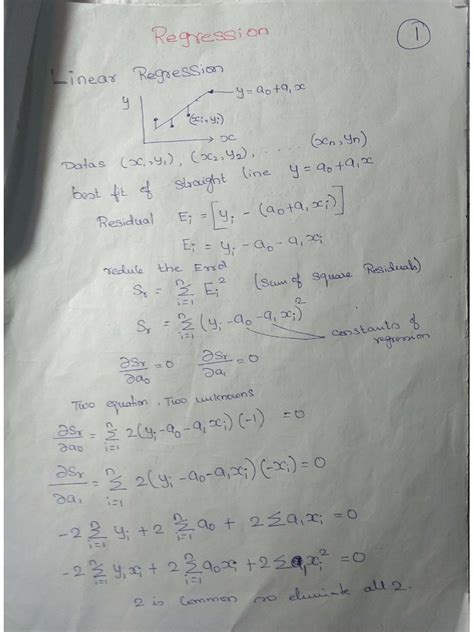 Regression
1
Linear Regression
y
y = a₀+a₁x
(xᵢ,yᵢ)
x
Datas (x₁,y₁), (x₂,y₂), ...... (xₙ,yₙ)
best fit of straight line y = a₀+a₁x
Residual Eᵢ = [yᵢ - (a₀+a₁xᵢ)]
Eᵢ = yᵢ - a₀ - a₁xᵢ
redule the Error
Sᵣ = Σⁿᵢ₌₁ Eᵢ² (Sum of Square Residuals)
Sᵣ = Σⁿᵢ₌₁ (yᵢ - a₀ - a₁xᵢ)²
constants of
regression
∂Sᵣ/∂a₀ = 0 ∂Sᵣ/∂a₁ = 0
Two equation, Two unknowns
∂Sᵣ/∂a₀ = Σⁿᵢ₌₁ 2(yᵢ - a₀ - a₁xᵢ)(-1) = 0
∂Sᵣ/∂a₁ = Σⁿᵢ₌₁ 2(yᵢ - a₀ - a₁xᵢ)(-xᵢ) = 0
-2 Σⁿᵢ₌₁ yᵢ + 2 Σⁿᵢ₌₁ a₀ + 2 Σ a₁xᵢ = 0
-2 Σⁿᵢ₌₁ yᵢxᵢ + 2 Σⁿᵢ₌₁ a₀xᵢ + 2 Σ a₁xᵢ² = 0
2 is common so eliminate all 2.